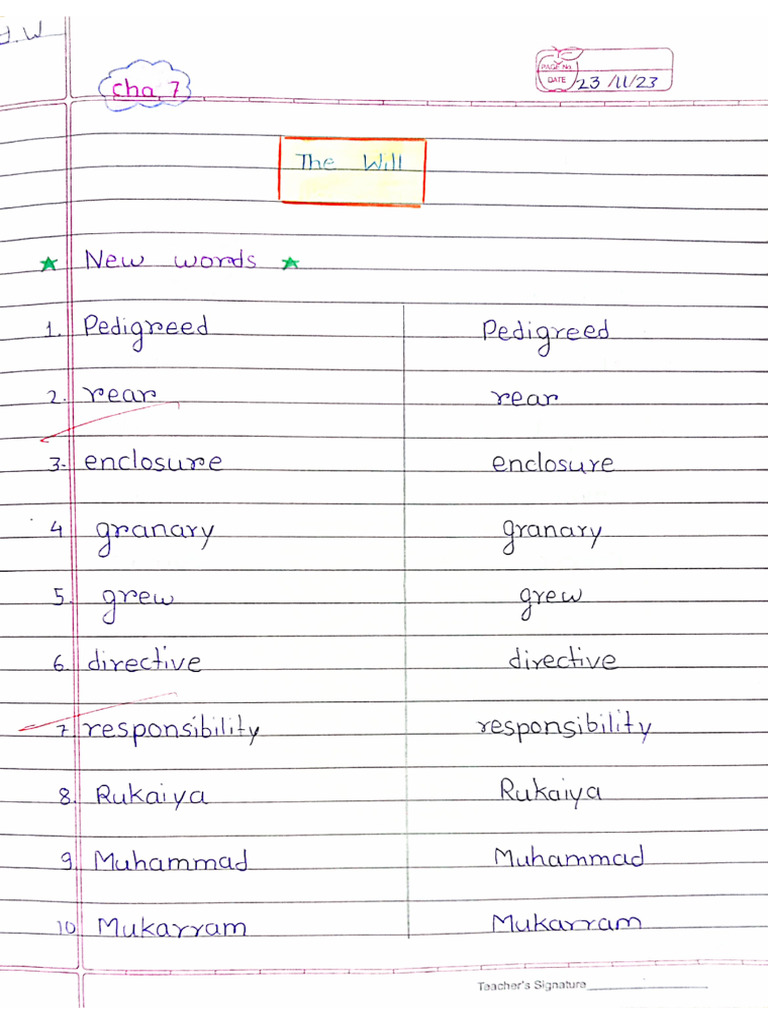 Cha. 7
PAGE No.
DATE 23/11/23
The Will
New words
1. Pedigreed Pedigreed
2. rear rear
3. enclosure enclosure
4 granary granary
5. grew grew
6. directive directive
7. responsibility responsibility
8. Rukaiya Rukaiya
9. Muhammad Muhammad
10 Mukarram Mukarram
Teacher's Signature